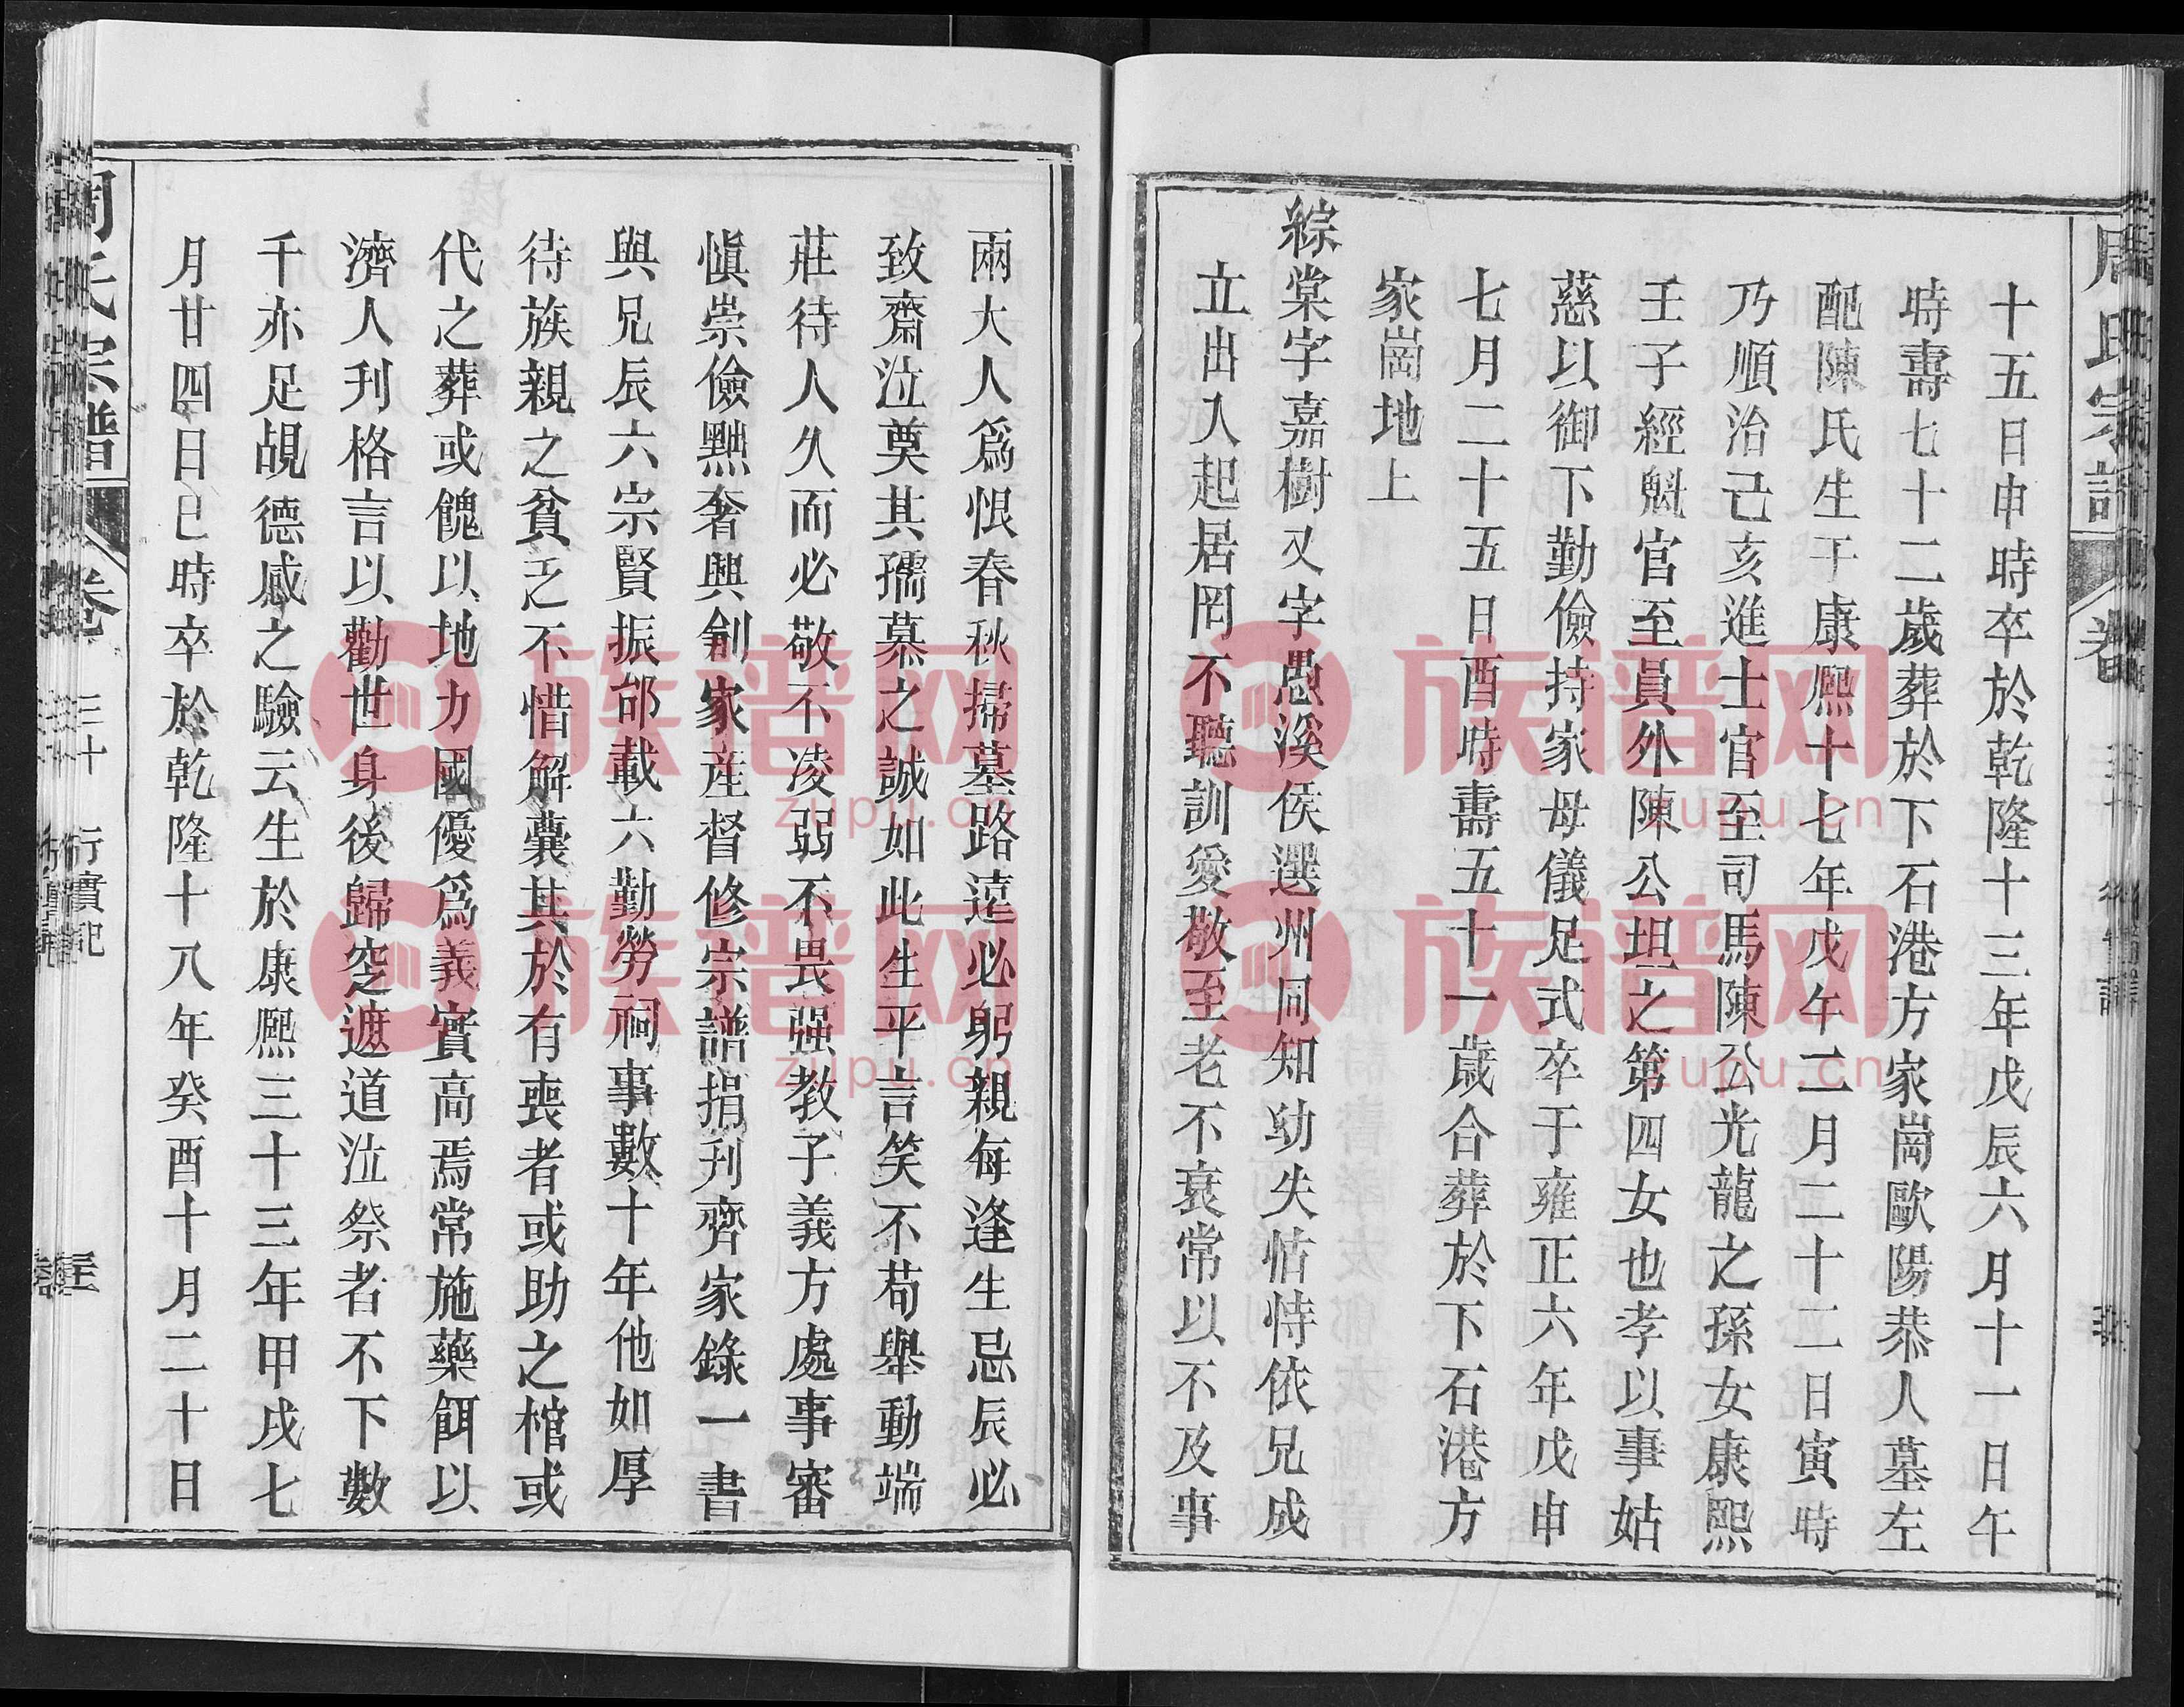 周氏宗譜
十五日申時卒於乾隆十三年戊辰六月十一日午
時壽七十二歲葬於下石港方家崗歐陽恭人墓左
配陳氏生于康熙十七年戊午二月二十二日寅時
乃順治己亥進士官至司馬陳公光龍之孫女康熙
壬子經魁官至員外陳公坦之第四女也孝以事姑
慈以御下勤儉持家母儀足式卒于雍正六年戊申
七月二十五日酉時壽五十一歲合葬於下石港方
家崗地上
綜棠字嘉樹又字愚溪侯選州同知幼失怙恃依兄成
立出入起居罔不聽訓愛敬至老不衰常以不及事
兩大人爲恨春秋掃墓路遠必躬親每逢生忌辰必
致齋泣奠其孺慕之誠如此生平言笑不苟舉動端
莊待人久而必敬不凌弱不畏强教子義方處事審
愼崇儉黜奢興創家産督修宗譜捐刋齊家錄一書
與兄辰六宗賢振邰載六勤勞祠事數十年他如厚
待族親之貧乏不惜解囊其於有喪者或助之棺或
代之葬或餽以地力國優爲義實高焉常施藥餌以
濟人刋格言以勸世身後歸窆遮道泣祭者不下數
千亦足覘德感之驗云生於康熙三十三年甲戌七
月廿四日巳時卒於乾隆十八年癸酉十月二十日
周氏宗譜 卷 三十 行實記
族谱网
zupu.cn
族谱网
zupu.cn
族谱网
zupu.cn
族谱网
zupu.cn